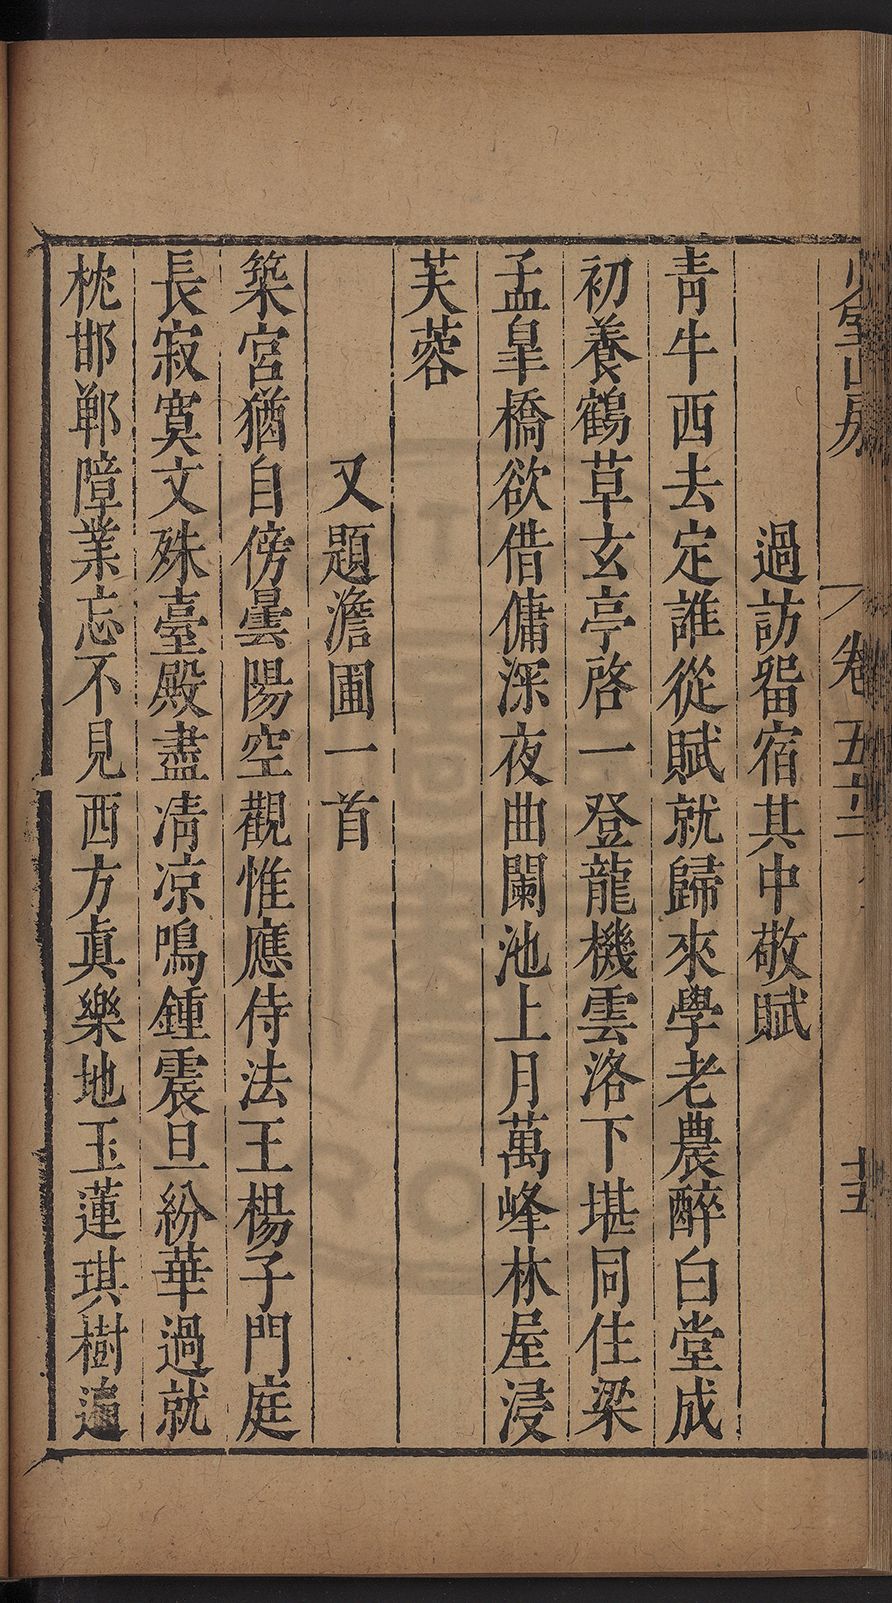 少室山房
卷五十二
十五
過訪畱宿其中敬賦
青牛西去定誰從賦就歸來學老農醉白堂成
初養鶴草玄亭啓一登龍機雲洛下堪同住梁
孟皐橋欲借傭深夜曲闌池上月萬峰林屋浸
芙蓉
又題澹圃一首
築宮猶自傍曇陽空觀惟應侍法王楊子門庭
長寂寞文殊臺殿盡凊凉鳴鍾震旦紛華過就
枕邯鄲障業忘不見西方眞樂地玉蓮琪樹遍